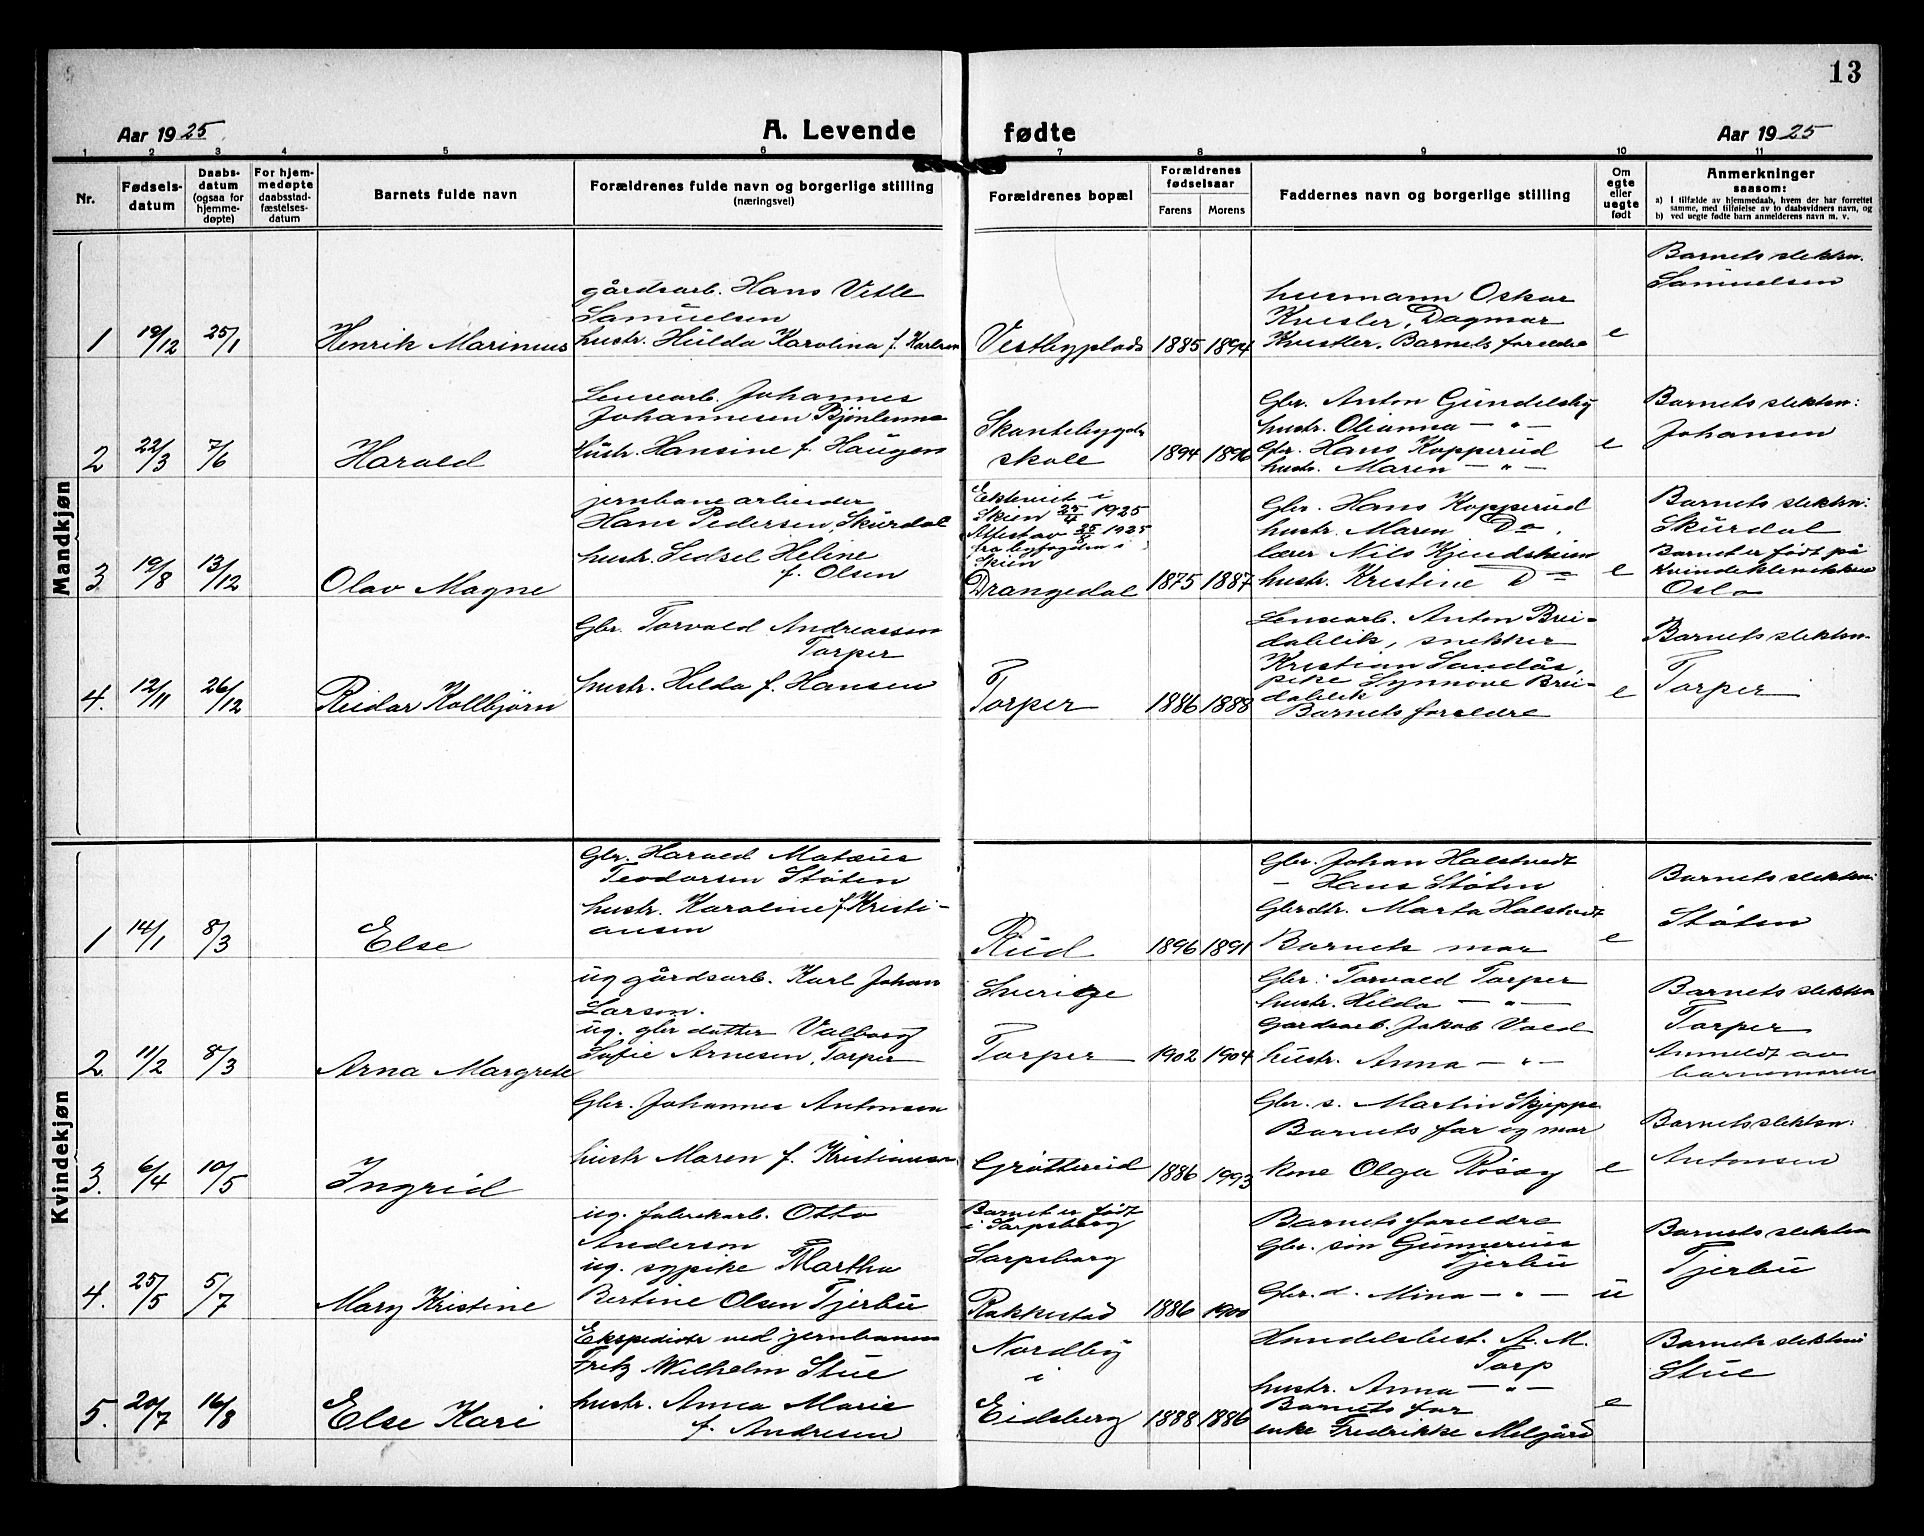 13
Aar 1925
A. Levende fødte
Aar 1925
1 2 3 4 5 6 7 8 9 10 11
Nr.
Fødsels-
datum
Daabs-
datum
(ogsaa for
hjemme-
døpte)
For hjem-
medøpte
daabsstad-
fæstelses-
datum
Barnets fulde navn
Forældrenes fulde navn og borgerlige stilling
(næringsvei)
Forældrenes bopæl
Forældrenes
fødselsaar
Farens Morens
Faddernes navn og borgerlige stilling
Om
egte
eller
uegte
født
Anmerkninger
saasom:
a) I tilfælde av hjemmedaab, hvem der har forrettet
samme, med tilføielse av to daabsvidners navn, og
b) ved uegte fødte barn anmelderens navn m. v.
Mandkjøn
1 19/12 25/1 Henrik Marinius
gårdsarb. Hans Vetle
Samuelsen
hustr. Hulda Karolina f. Karlsen
Vestbyplads 1885 1894
husmann Oskar
Kvisler, Dagmar
Kvisler. Barnets foreldre
e
Barnets slektsn.
Samuelsen
2 22/3 7/6 Harald
Lensearb. Johannes
Johannesen Bjönlenna
Hustr. Hansine f. Haugen
Skantebygda
skole 1894 1896
Gbr. Anton Gundelsby
hustr. Olianna — " —
Gbr. Hans Kopperud
hustr. Maren — " —
e
Barnets slektsn:
Johansen
3 19/8 13/12 Olav Magne
jernbanearbeider
Hans Pedersen Skurdal
hustr. Sidsel Heline
f. Olsen
Ekteviet i
Skien 25/4 1925
Attest av 25/8 1925
fra byfogden i
Skien
Drangedal 1875 1887
Gbr. Hans Kopperud
hustr. Maren Do.
lærer Nils Kjendsheim
hustr. Kristine Do
e
Barnets slektsn:
Skurdal
Barnet er født på
Kvindeklinikken
Oslo
4. 12/11 26/12 Reidar Kolbjørn
Gbr. Torvald Andreassen
Torper
hustr. Hilda f. Hansen
Torper 1886 1888
Lensearb. Anton Brei-
dablik, snekker
Kristian Sandås,
pike Synnove Brei-
dablik
Barnets foreldre
e
Barnets slektsn.
Torper
Kvindekjøn
1 14/1 8/3 Else
Gbr. Harald Mataus
Teodorsen Støten
hustr. Karoline f. Kristi-
ansen
Rud 1896 1891
Gbr. Johan Halstvedt
— Hans Støten
Gbrdtr. Marta Halstvedt
Barnets mor
e
Barnets slektsn:
Støten
2 11/2 8/3 Arna Margrete
ug gårdsarb. Karl Johan
Larson.
ug. gbr datter Valborg
Sofie Arnesen, Torper
Sverige
Torper 1902 1904
Gbr: Torvald Torper
hustr. Hilda — " —
Gårdsarb. Jakob Vold
hustr. Anna — " —
Barnets slektsn
Torper
Anmeldt av
barnemoren
3. 6/4 10/5 Ingrid
Gbr. Johannes Antonsen
hustr Maren f. Kristiansen
Gröttereid 1886 1993
Gbr. s. Martin Skjeppe
Barnets far og mor
Kone Olga Rösæg
e
Barnets slektsn:
Antonsen
4. 25/5 5/7 Mary Kristine
ug. fabrikarb. Otto
Anderson
ug. sypike Martha
Bertine Olsen Tjerbu
Barnet er født
i Sarpsborg
Sarpsborg
Rakkestad 1886 1900
Barnets foreldre
Gbr. sön Gunnerius
Tjerbu
Gbr. d. Mina — " —
u
Barnets slektsn
Tjerbu
5. 20/7 16/8 Else Kari
Ekspeditör ved jernbanen
Fritz Wilhelm Stue
hustr. Anna Marie
f. Andresen
Nordby
i
Eidsberg 1888 1886
Handelsbest. A. M.
Torp
hustr. Anna — " —
Barnets far
enke Fredrikke Melgård
e
Barnets slektsn:
Stue